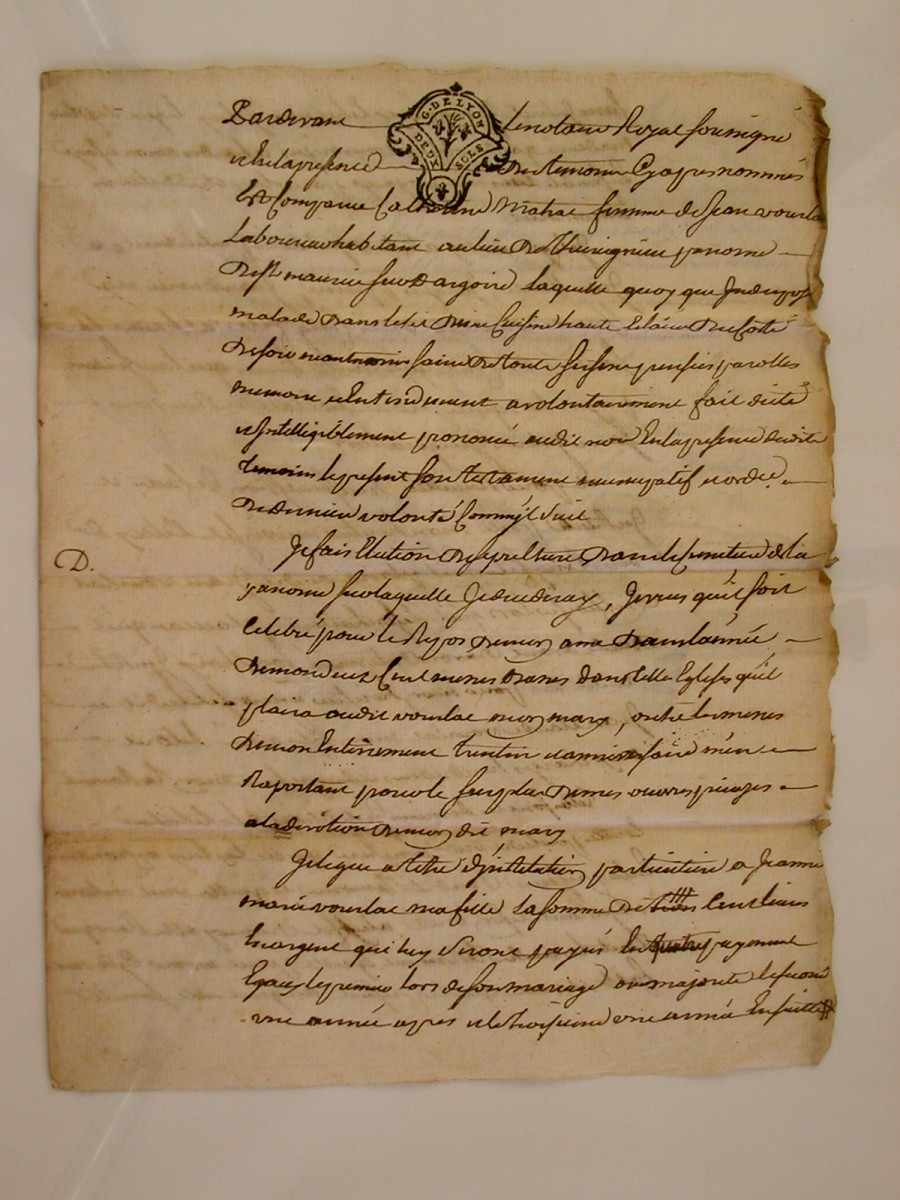 G. DE LYON
DEUX SOLS
Pardevant le notaire Royal soussigné
et En la presence des temoins Cy apres nommés
Est Comparue Catherine femme de Jean vourlat
Laboureur habitant au lieu de paroisse
De St maurice sur dargoire laquelle quoy que
malade dans le lit
De soin neantmoins saine de tous ses sens pensées parolles
memoire et Entendement a volontairement fait dicté
et Intelligiblement prononcé audit no.re En la presence desdits
temoins le present son testament nuncupatif et ordre
De derniere volonté Comm'il suit
Je fais Election de sepulture dans le cimetiere de la
D.
paroisse sur laquelle Je decederay, Je veux qu'il soit
Celebré pour le Repos de mon ame dans l'année
De mon deces Cent messes basses dans telles Eglises qu'il
plaira audit vourlat mon mary, outre les messes
De mon Enterrement trentin et anniversaire m'en
Raportant pour le surplus de mes œuvres pieuses
a la devotion de mon dit mary
Je legue a titre d'institution particuliere a Jeanne
marie vourlat ma fille la somme de trois Cent livres
En argent qui luy seront payés En payement
Egaux le premier lors de son mariage ou majorité le second
une année apres et le troisieme une année Ensuitte